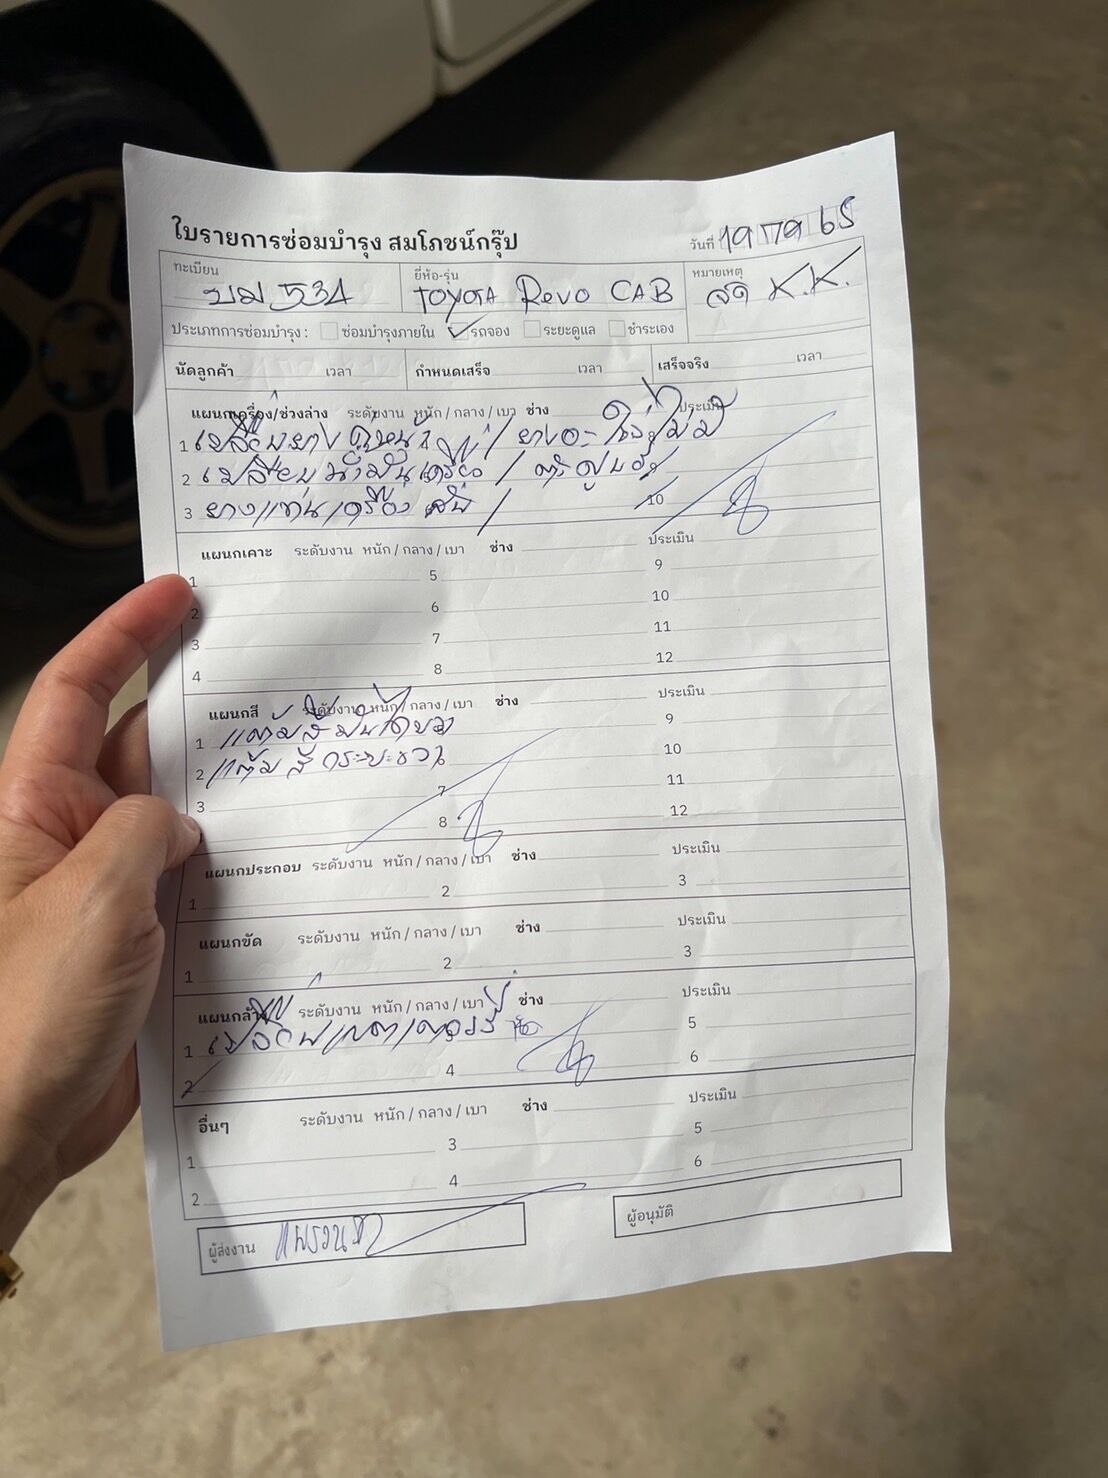 ใบรายการซ่อมบำรุง สมโภชน์กรุ๊ป
วันที่ 19 65
ทะเบียน
บม 534
ยี่ห้อ-รุ่น
TOYOTA Revo CAB
หมายเหตุ
สด K.K.
ประเภทการซ่อมบำรุง : ซ่อมบำรุงภายใน รถจอง ระยะดูแล ชำระเอง
นัดลูกค้า เวลา กำหนดเสร็จ เวลา เสร็จจริง เวลา
แผนกเครื่อง/ช่วงล่าง ระดับงาน หนัก / กลาง / เบา ช่าง ประเมิน
1 เปลี่ยนยางคู่หน้า / ยางอะไหล่ไม่มี
2 เปลี่ยนน้ำมันเครื่อง /
3 ยางแท่นเครื่อง / 10
แผนกเคาะ ระดับงาน หนัก / กลาง / เบา ช่าง ประเมิน
1 5 9
2 6 10
3 7 11
4 8 12
แผนกสี ระดับงาน หนัก / กลาง / เบา ช่าง ประเมิน
1 แต้มสี 9
2 แต้มสีกระบะขวา 10
3 7 11
8 12
แผนกประกอบ ระดับงาน หนัก / กลาง / เบา ช่าง ประเมิน
1 2 3
แผนกขัด ระดับงาน หนัก / กลาง / เบา ช่าง ประเมิน
1 2 3
แผนกล้าง ระดับงาน หนัก / กลาง / เบา ช่าง ประเมิน
1 เปลี่ยนแบตเตอรี่ 5
2 4 6
อื่นๆ ระดับงาน หนัก / กลาง / เบา ช่าง ประเมิน
1 3 5
2 4 6
ผู้ส่งงาน
ผู้อนุมัติ